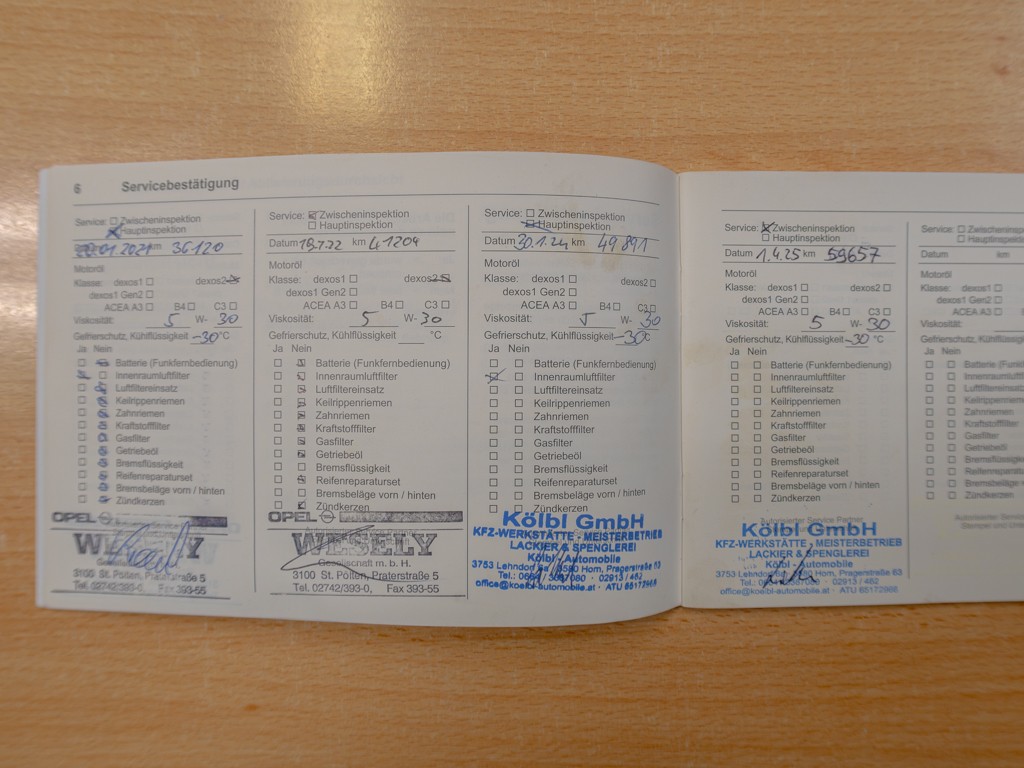 6 Servicebestätigung
Service: Zwischeninspektion
Hauptinspektion
.01.2021 36120
Motoröl
Klasse: dexos1 dexos2
dexos1 Gen2
ACEA A3 B4 C3
Viskosität: 5 W- 30
Gefrierschutz, Kühlflüssigkeit -30 °C
Ja Nein
Batterie (Funkfernbedienung)
Innenraumluftfilter
Luftfiltereinsatz
Keilrippenriemen
Zahnriemen
Kraftstofffilter
Gasfilter
Getriebeöl
Bremsflüssigkeit
Reifenreparaturset
Bremsbeläge vorn / hinten
Zündkerzen
OPEL
WESELY
3100 St. Pölten, Praterstraße 5
Tel. 02742/393-0, Fax 393-55
Service: Zwischeninspektion
Hauptinspektion
Datum 19.7.22 km 41204
Motoröl
Klasse: dexos1 dexos2
dexos1 Gen2
ACEA A3 B4 C3
Viskosität: 5 W- 30
Gefrierschutz, Kühlflüssigkeit °C
Ja Nein
Batterie (Funkfernbedienung)
Innenraumluftfilter
Luftfiltereinsatz
Keilrippenriemen
Zahnriemen
Kraftstofffilter
Gasfilter
Getriebeöl
Bremsflüssigkeit
Reifenreparaturset
Bremsbeläge vorn / hinten
Zündkerzen
OPEL
WESELY
Gesellschaft m. b. H.
3100 St. Pölten, Praterstraße 5
Tel. 02742/393-0, Fax 393-55
Service: Zwischeninspektion
Hauptinspektion
Datum 30.1.24 km 49891
Motoröl
Klasse: dexos1 dexos2
dexos1 Gen2
ACEA A3 B4 C3
Viskosität: 5 W- 30
Gefrierschutz, Kühlflüssigkeit -30 °C
Ja Nein
Batterie (Funkfernbedienung)
Innenraumluftfilter
Luftfiltereinsatz
Keilrippenriemen
Zahnriemen
Kraftstofffilter
Gasfilter
Getriebeöl
Bremsflüssigkeit
Reifenreparaturset
Bremsbeläge vorn / hinten
Zündkerzen
Kölbl GmbH
KFZ-WERKSTÄTTE - MEISTERBETRIEB
LACKIER & SPENGLEREI
Kölbl - Automobile
3753 Lehndorf 3580 Horn, Pragerstraße 63
Tel.: 02913 / 482
office@koelbl-automobile.at · ATU 65172966
Service: Zwischeninspektion
Hauptinspektion
Datum 1.4.25 km 59657
Motoröl
Klasse: dexos1 dexos2
dexos1 Gen2
ACEA A3 B4 C3
Viskosität: 5 W- 30
Gefrierschutz, Kühlflüssigkeit -30 °C
Ja Nein
Batterie (Funkfernbedienung)
Innenraumluftfilter
Luftfiltereinsatz
Keilrippenriemen
Zahnriemen
Kraftstofffilter
Gasfilter
Getriebeöl
Bremsflüssigkeit
Reifenreparaturset
Bremsbeläge vorn / hinten
Zündkerzen
Autorisierter Service Partner
Kölbl GmbH
KFZ-WERKSTÄTTE - MEISTERBETRIEB
LACKIER & SPENGLEREI
Kölbl - Automobile
3753 Lehndorf 3580 Horn, Pragerstraße 63
Tel.: 02913 / 482
office@koelbl-automobile.at · ATU 65172966
Service: Zwischeninspektion
Hauptinspektion
Datum km
Motoröl
Klasse: dexos1
dexos1 Gen2
ACEA A3
Viskosität:
Gefrierschutz, Kühlflüssigkeit
Ja Nein
Batterie (Funkfernbe
Innenraumluftfilter
Luftfiltereinsatz
Keilrippenriemen
Zahnriemen
Kraftstofffilter
Gasfilter
Getriebeöl
Bremsflüssigkeit
Reifenreparaturset
Bremsbeläge vorn
Zündkerzen
Autorisierter Service
Stempel und Unter